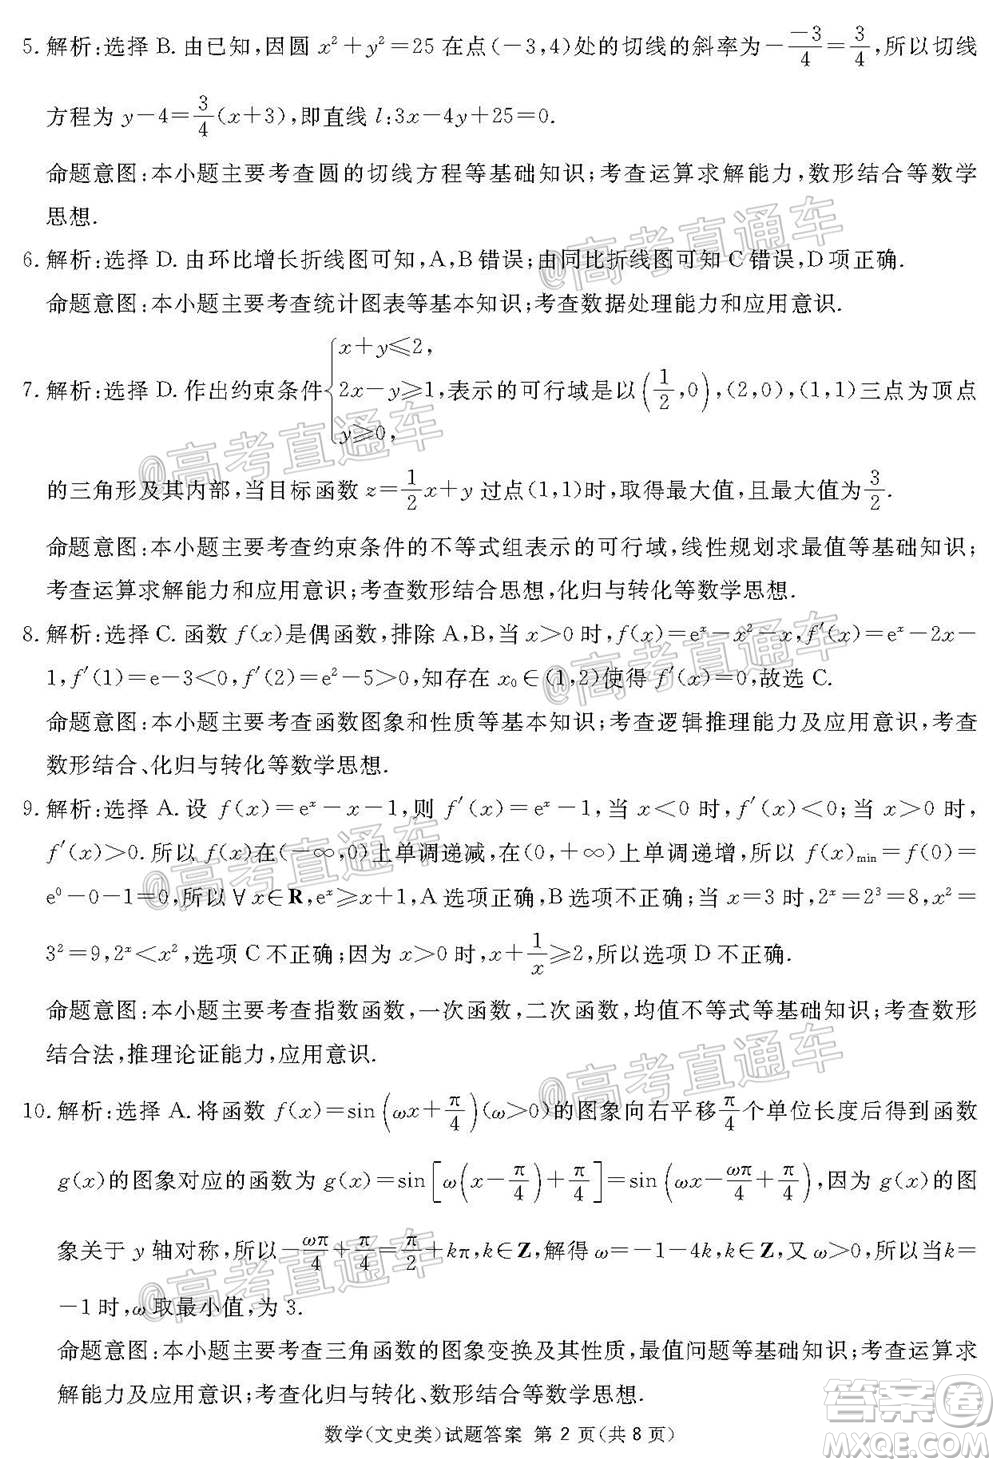 5. 解析:选择 B. 由已知,因圆 x²+y²=25 在点(-3,4)处的切线的斜率为 -(-3)/4=3/4,所以切线
方程为 y-4=3/4(x+3),即直线 l:3x-4y+25=0.
命题意图:本小题主要考查圆的切线方程等基础知识;考查运算求解能力,数形结合等数学
思想.
6. 解析:选择 D. 由环比增长折线图可知,A,B 错误;由同比折线图可知 C 错误,D 项正确.
命题意图:本小题主要考查统计图表等基本知识;考查数据处理能力和应用意识.
7. 解析:选择 D. 作出约束条件{x+y≤2, 2x-y≥1, y≥0,表示的可行域是以(1/2,0),(2,0),(1,1)三点为顶点
的三角形及其内部,当目标函数 z=1/2x+y 过点(1,1)时,取得最大值,且最大值为3/2.
命题意图:本小题主要考查约束条件的不等式组表示的可行域,线性规划求最值等基础知识;
考查运算求解能力和应用意识;考查数形结合思想,化归与转化等数学思想.
8. 解析:选择 C. 函数 f(x)是偶函数,排除 A,B,当 x>0 时,f(x)=eˣ-x²-x,f′(x)=eˣ-2x-
1,f′(1)=e-3<0,f′(2)=e²-5>0,知存在 x₀∈(1,2)使得 f′(x)=0,故选 C.
命题意图:本小题主要考查函数图象和性质等基本知识;考查逻辑推理能力及应用意识,考查
数形结合、化归与转化等数学思想.
9. 解析:选择 A. 设 f(x)=eˣ-x-1,则 f′(x)=eˣ-1,当 x<0 时,f′(x)<0;当 x>0 时,
f′(x)>0. 所以 f(x)在(-∞,0)上单调递减,在(0,+∞)上单调递增,所以 f(x)min=f(0)=
e⁰-0-1=0,所以∀x∈R,eˣ≥x+1,A 选项正确,B 选项不正确;当 x=3 时,2ˣ=2³=8,x²=
3²=9,2ˣ<x²,选项 C 不正确;因为 x>0 时,x+1/x≥2,所以选项 D 不正确.
命题意图:本小题主要考查指数函数,一次函数,二次函数,均值不等式等基础知识;考查数形
结合法,推理论证能力,应用意识.
10. 解析:选择 A. 将函数 f(x)=sin(ωx+π/4)(ω>0)的图象向右平移π/4个单位长度后得到函数
g(x)的图象对应的函数为 g(x)=sin[ω(x-π/4)+π/4]=sin(ωx-ωπ/4+π/4),因为 g(x)的图
象关于 y 轴对称,所以-ωπ/4+π/4=π/2+kπ,k∈Z,解得 ω=-1-4k,k∈Z,又 ω>0,所以当 k=
-1 时,ω 取最小值,为 3.
命题意图:本小题主要考查三角函数的图象变换及其性质,最值问题等基础知识;考查运算求
解能力及应用意识;考查化归与转化、数形结合等数学思想.
数学(文史类)试题答案 第 2 页(共 8 页)
@高考直通车
@高考直通车
@高考直通车
@高考直通车
@高考直通车
@高考直通车
答案圈
MXQE.COM